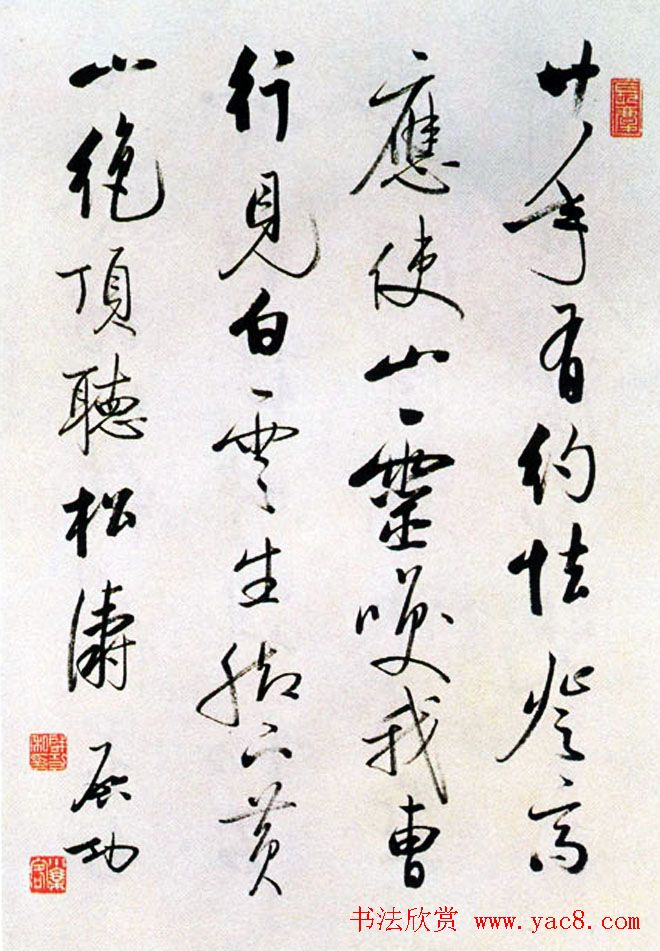 廿年有約怯登高
應使山靈嘆我曹
行見白雲生腳下黃
山絕頂聽松濤
啟功
书法欣赏 www.yac8.com